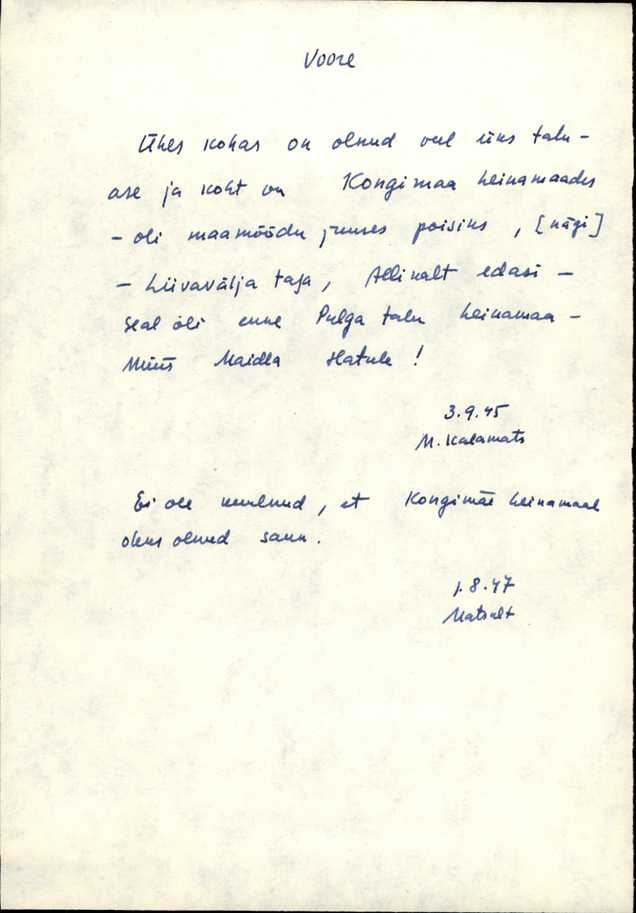 Voore
Ühes kohas on olnud veel üks talu-
ase ja koht on Kongimaa heinamaades
- oli maamõõdu juures poisiks, [nägi]
- Liivavälja taga, Allikalt edasi -
seal oli enne Pulga talu heinamaa -
Müüs Maidla
3.9.45
M. Kalamats
Ei ole kuulnud, et Kongimäe heinamaal
oleks olnud saun.
1.8.47
Matsalt